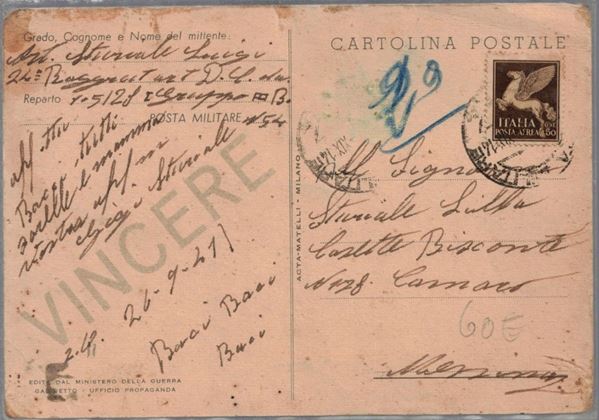 Grado, Cognome e Nome del mittente:
Art. Sturiale Luigi
24° Raggrut art D.C.
Reparto 105/28 Gruppo B.
POSTA MILITARE N 54
tutti
Baci
sorelle e mamma
vostro
Gigi Sturiale
VINCERE
26-9-41
Baci Baci
Baci
EDITE DAL MINISTERO DELLA GUERRA
GABINETTO - UFFICIO PROPAGANDA
ACTA-MATELLI - MILANO
CARTOLINA POSTALE
ITALIA
POSTA AEREA
50
Signora
Sturiale Lilla
Casette Bisconte
No 28. Camaro
60E
Messina